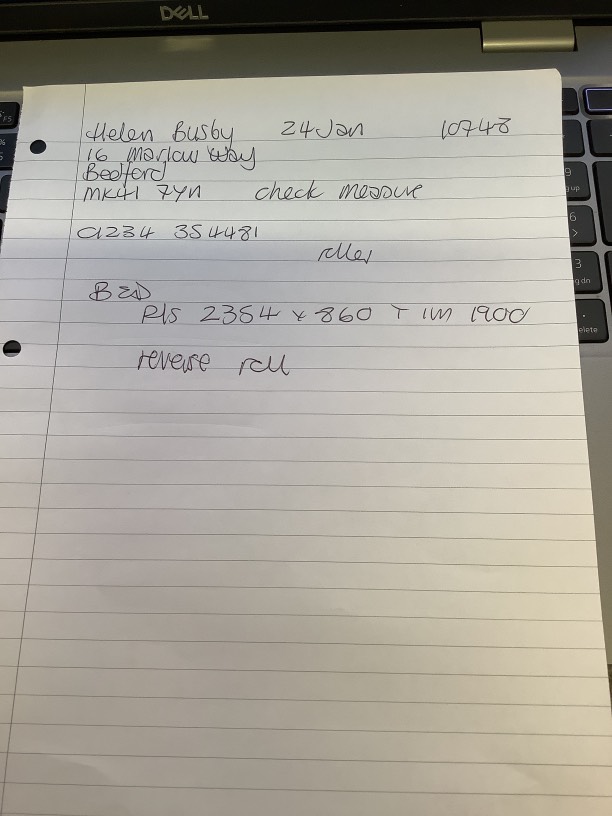 DELL
Helen Busby 24 Jan 10748
16 Marlow Way
Bedford
MK41 7YN check measure
01234 354481
roller
BED
R/S 2354 x 860 T 1M 1900
reverse roll